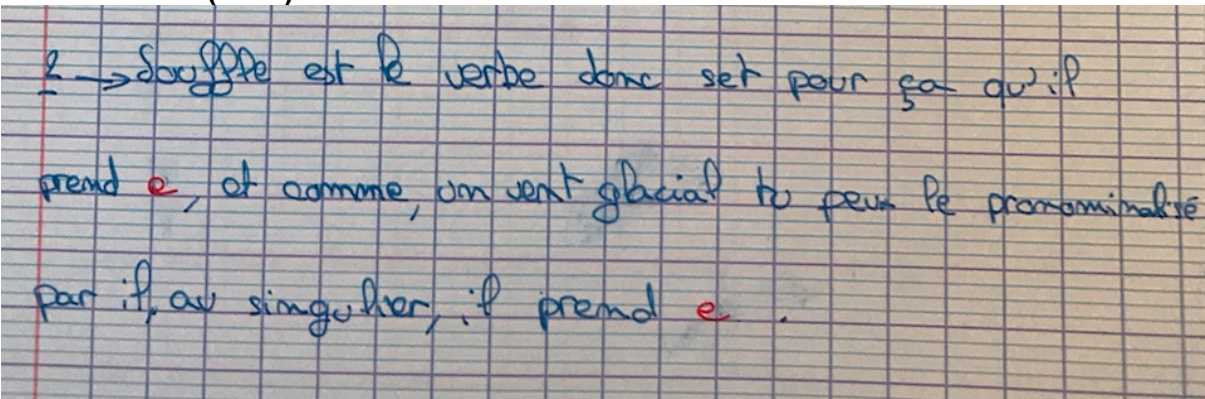 2 → Souffle est le verbe donc set pour ça qu'il
prend e, et comme, un vent glacial tu peux le pronominalisé
par il, au singulier, il prend e.